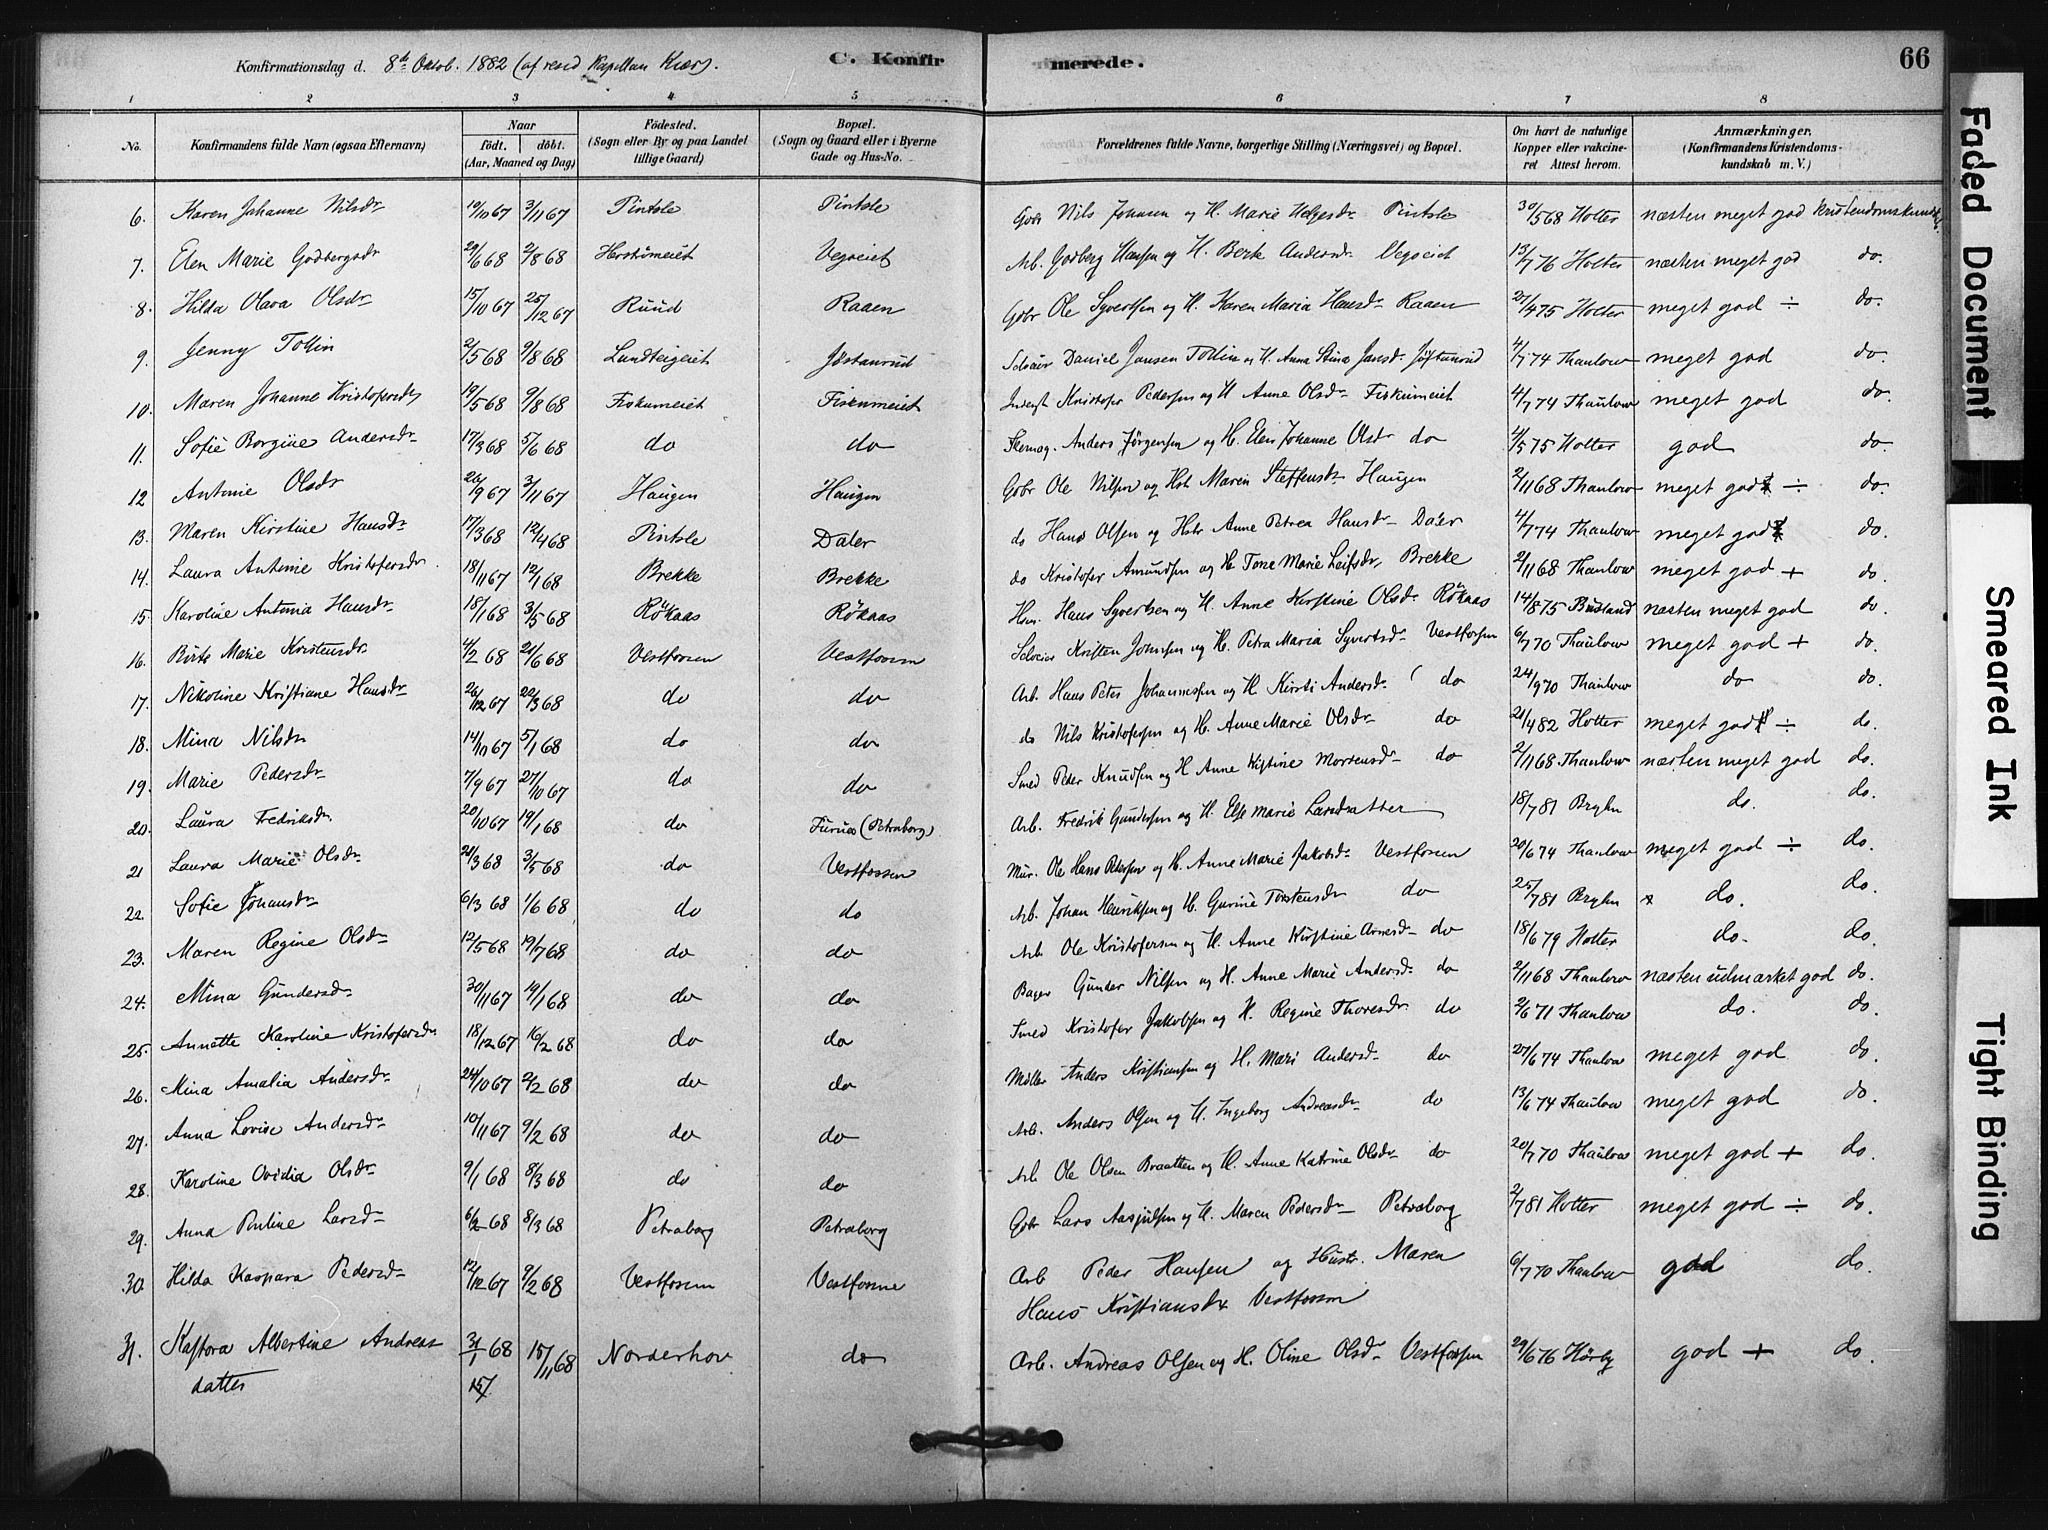 Konfirmationsdag d. 8de Octob. 1882 (af resid Kapellan Kiær). C. Konfir merede. 66
1 2 3 4 5 6 7 8
No. Konfirmandens fulde Navn (ogsaa Efternavn) Naar født. døbt. (Aar, Maaned og Dag) Fødested. (Sogn eller By og paa Landet tillige Gaard) Bopæl. (Sogn og Gaard eller i Byerne Gade og Hus-No. Forældrenes fulde Navne, borgerlige Stilling (Næringsvei) og Bopæl. Om havt de naturlige Kopper eller vakcineret Attest herom. Anmærkninger. (Konfirmandens Kristendomskundskab m. V.)
6. Karen Johanne Nilsdr 19/10 67 3/11 67 Pintsle Pintsle Gbr Nils Johnsen og H. Marie Helgesdr Pintsle 30/5 68 Holter næsten meget god Kristendomskundsk.
7. Elen Marie Godbergsdr 29/6 68 2/8 68 Herstrømeiet Vegoeiet Arb. Godberg Hansen og H. Berte Andersdr Vegoeiet 13/7 76 Holter næsten meget god do.
8. Hilda Olava Olsdr 15/10 67 25/12 67 Ruud Raaen Gbr Ole Syvertsen og H. Karen Maria Hansdr Raaen 27/4 75 Holter meget god ÷ do.
9. Jenny Tollin 2/5 68 9/8 68 Lundteigeiet Jostanrud Daniel Jansen Tollin og H. Anna Stina Jansdr 4/7 74 Thaulow meget god do.
10. Maren Johanne Kristofersdr 19/5 68 9/8 68 Fiskumeiet Fiskumeiet Inderst Kristofer Pedersen og H Anne Olsdr Fiskumeiet 4/7 74 Thaulow meget god do.
11. Sofie Borgine Andersdr 17/3 68 5/6 68 do do Anders Jørgensen og H. Elen Johanne Olsdr do 4/5 75 Holter god do.
12 Antonie Olsdr 20/9 67 3/11 67 Haugen Haugen Gbr Ole Nilsen og Hst Maren Steffensdr Haugen 2/11 68 Thaulow meget god ÷ do.
13. Maren Kirstine Hansdr 17/3 68 12/4 68 Pintsle Daler do Hans Olsen og Hstr Anne Petrea Hansdr Daler 4/7 74 Thaulow meget god do.
14. Laura Antonie Kristofersdr. 18/11 67 12/1 68 Brekke Brekke do Kristofer Amundsen og H. Tone Marie Leifsdr, Brekke 2/11 68 Thaulow meget god + do.
15. Karoline Antonia Hansdr 18/1 68 3/5 68 Rökaas Rökaas Hsm. Hans Syvertsen og H. Anne Kirstine Olsdr Rökaas 14/8 75 Bustand næsten meget god do.
16. Birte Marie Kristensdr 4/2 68 21/6 68 Vestfossen Vestfossen Kristen Johnsen og H. Petra Maria Syvertsdr Vestfossen 6/7 70 Thaulow meget god + do.
17. Nikoline Kristiane Hansdr 26/12 67 22/3 68 do do Arb. Hans Peter Johannessen og H. Kirsti Andersdr do 24/9 70 Thaulow do do.
18. Mina Nilsdr 14/10 67 5/1 68 do do do Nils Kristofersen og H. Anne Marie Olsdr do 21/4 82 Holter meget god ÷ do.
19. Marie Pedersdr 7/9 67 27/10 67 do do Smed Peder Knudsen og H Anne Kistine Mortensdr do 2/11 68 Thaulow næsten meget god do.
20. Laura Fredriksdr. 20/10 67 19/1 68 do Furuas (Petraborg) Arb. Fredrik Gundersen og H. Else Marie Larsdatter 18/7 81 Bryhn do. do.
21 Laura Marie Olsdr 21/3 68 3/5 68 do Vestfossen Mur. Ole Hans Petersen og H. Anne Marie Jakobsdr Vestfossen 20/6 74 Thaulow meget god ÷ do.
22. Sofie Johansdr 6/3 68 1/6 68 do do Arb. Johan Henriksen og H. Gurine Torstensdr do 25/7 81 Bryhn do. do.
23. Maren Regine Olsdr 12/5 68 19/7 68 do do Arb. Ole Kristofersen og H. Anne Kirstine Arnesdr do 18/6 79 Holter do. do.
24. Mina Gundersdr 30/11 67 19/1 68 do do Bager Gunder Nilsen og H. Anne Marie Andersdr do 2/11 68 Thaulow næsten udmærket god do.
25. Annette Karoline Kristofersdr 18/12 67 16/2 68 do do Smed Kristofer Jakobsen og H. Regine Thoresdr do 2/6 71 Thaulow do. do.
26. Mina Amalia Andersdr 24/10 67 2/2 68 do do Møller Anders Kristiansen og H. Mari Andersdr do 27/6 74 Thaulow meget god do.
27. Anna Lovise Andersdr 10/11 67 9/2 68 do do Arb. Anders Olsen og H. Ingeborg Andreasdr do 13/6 74 Thaulow meget god do.
28. Karoline Ovidia Olsdr 9/1 68 8/3 68 do do Arb Ole Olsen Braatten og H. Anne Katrine Olsdr do 20/7 70 Thaulow meget god + do.
29. Anna Pauline Larsdr 6/2 68 8/3 68 Petraborg Petraborg Gbr Lars Aasjulsen og H. Maren Pedersdr Petraborg 2/7 81 Holter meget god ÷ do.
30. Hilda Kaspara Pedersdr 12/12 67 9/2 68 Vestfossen Vestfossen Arb Peder Hansen og Hustr. Maren 6/7 70 Thaulow god do.
Hans Kristiansdr Vestfossen
31. Kastora Albertine Andreas 31/1 68 15/11 68 Norderhov do Arb. Andreas Olsen og H. Oline Olsdr Vestfossen 29/6 76 Hørby god + do.
datter 15/
Faded Document
Smeared Ink
Tight Binding